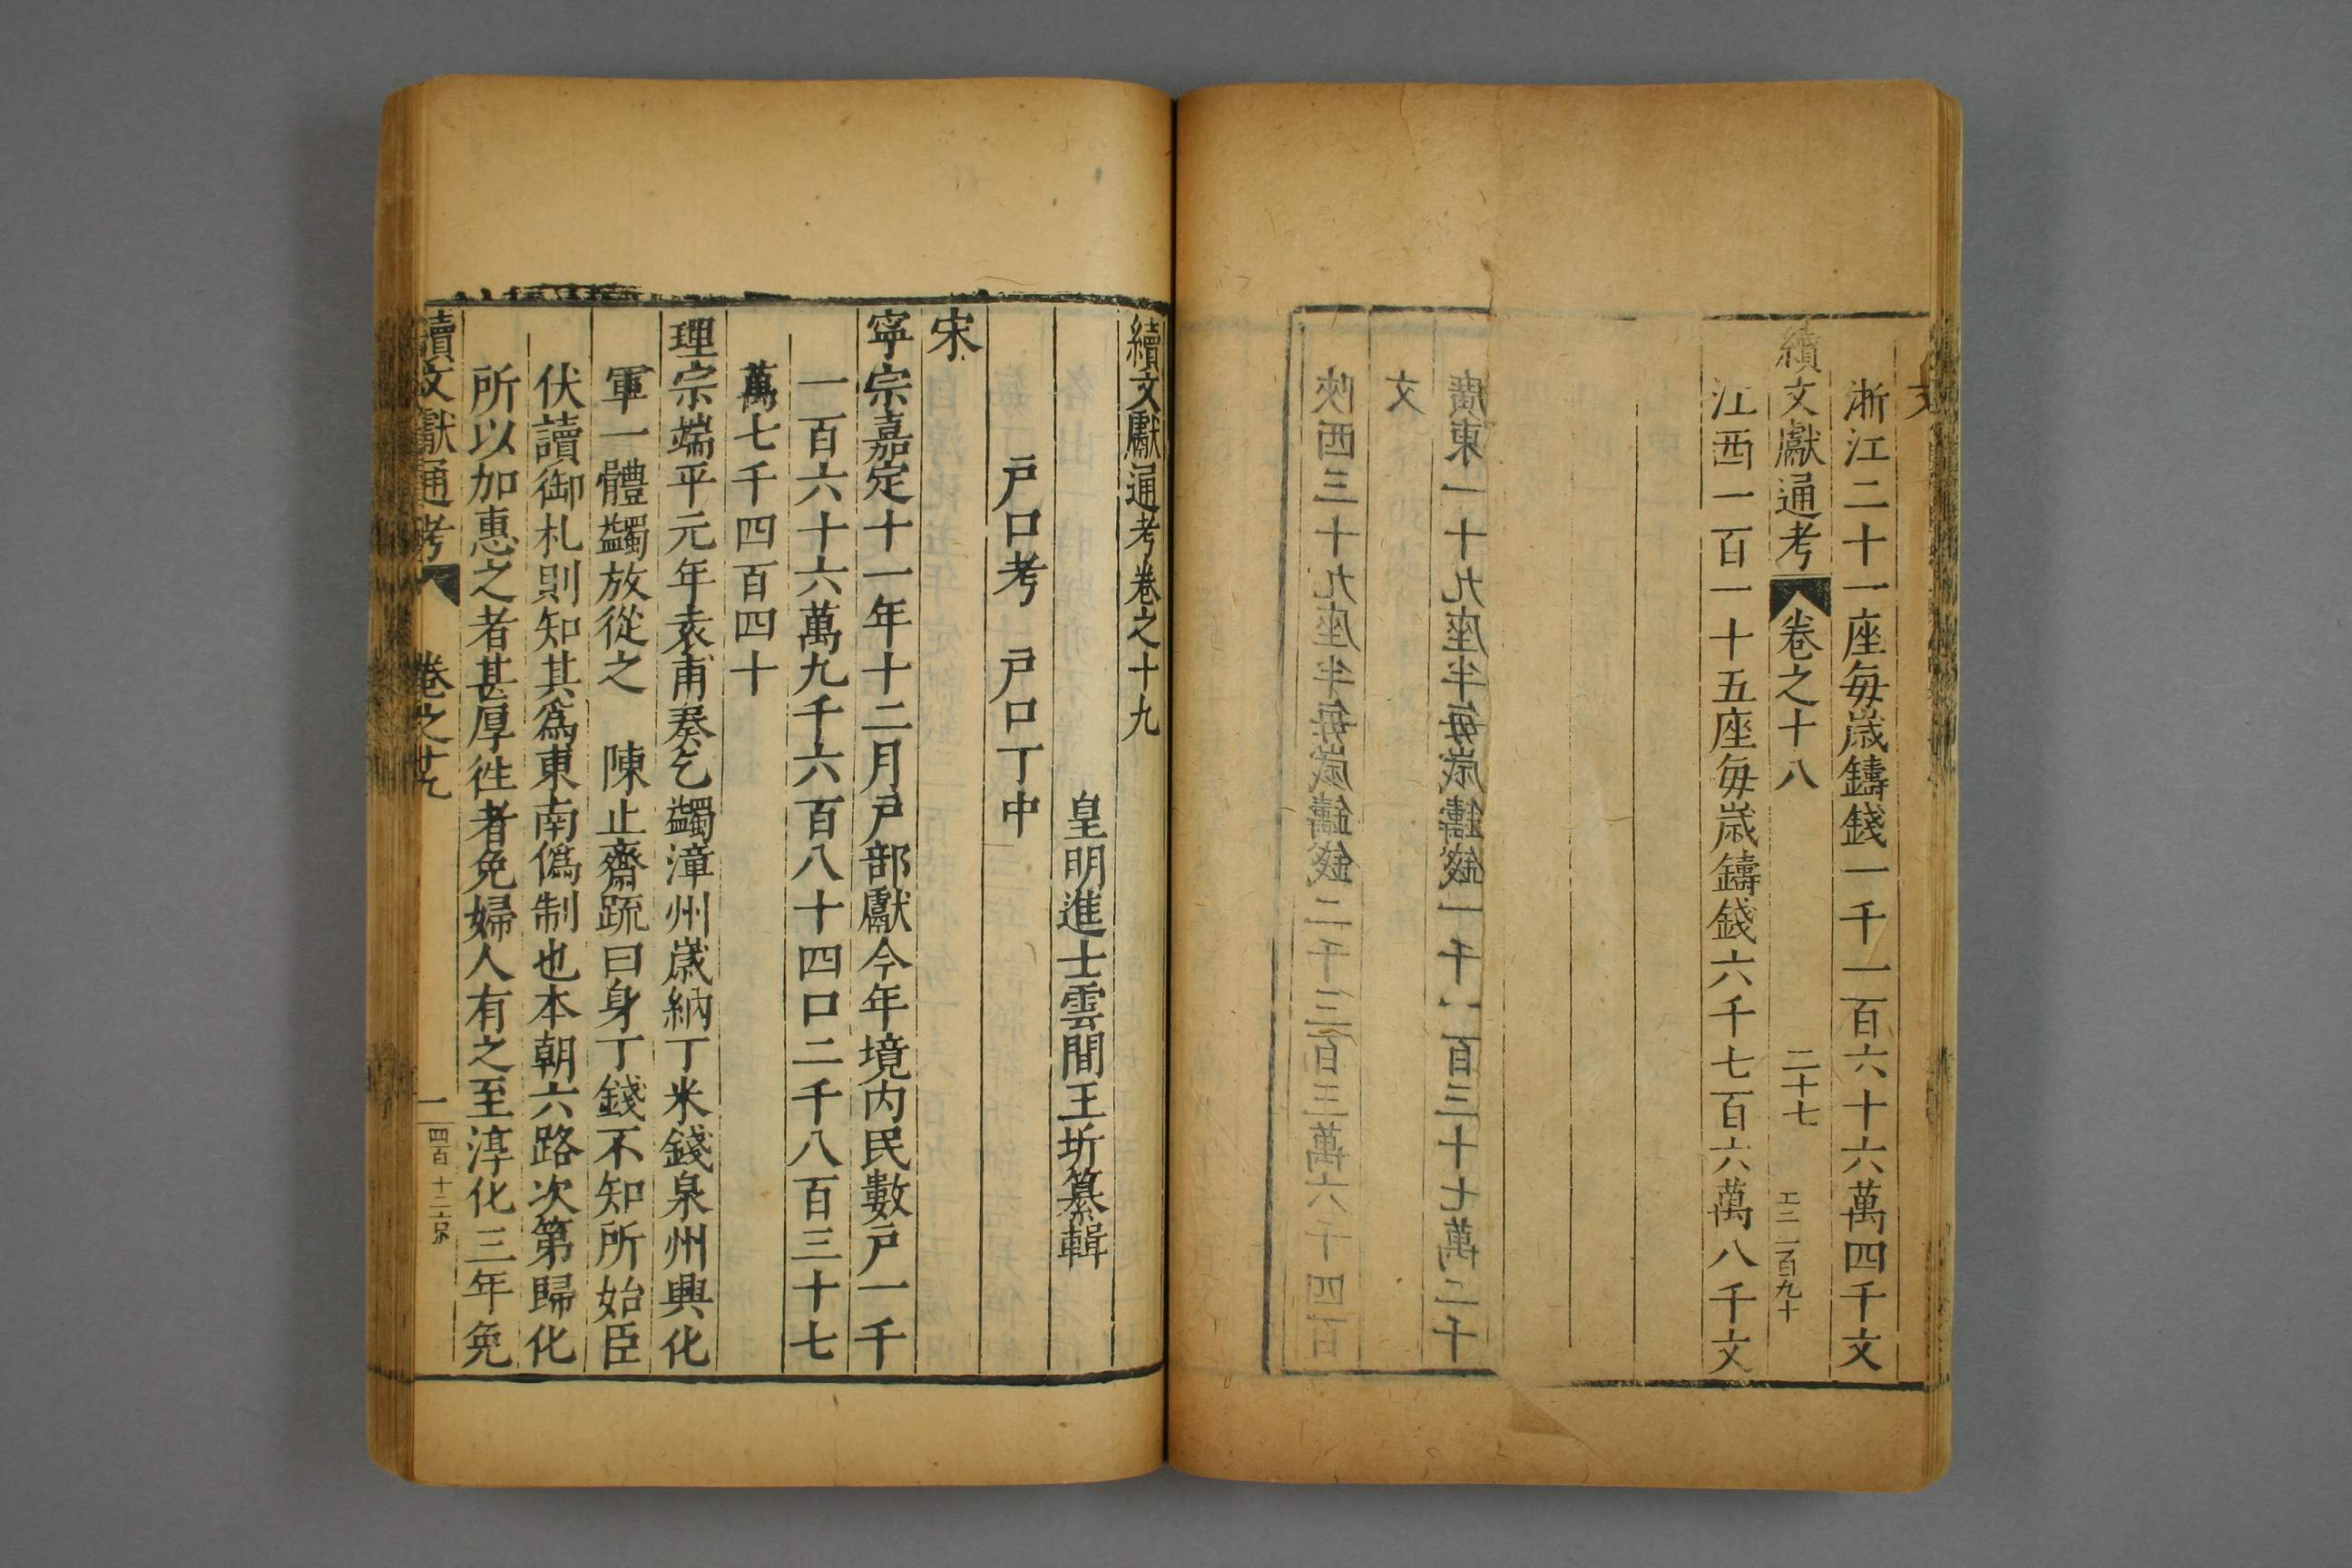 文
浙江二十一座每歲鑄錢一千一百六十六萬四千文
續文獻通考 卷之十八 二十七 工二一百九十
江西一百一十五座每歲鑄錢六千七百六萬八千文
廣東一十九座半每歲鑄錢一千 百三十七萬二千
文
陝西三十九座半每歲鑄錢二千三百三萬六千四百
續文獻通考卷之十九
皇明進士雲間王圻纂輯
戶口考 戶口丁中
宋
寧宗嘉定十一年十二月戶部獻今年境內民數戶一千
一百六十六萬九千六百八十四口二千八百三十七
萬七千四百四十
理宗端平元年袁甫奏乞蠲漳州歲納丁米錢泉州興化
軍一體蠲放從之 陳止齋疏曰身丁錢不知所始臣
伏讀御札則知其爲東南僞制也本朝六路次第歸化
所以加惠之者甚厚徃者免婦人有之至淳化三年免
續文獻通考 卷之十九 一 四百十二